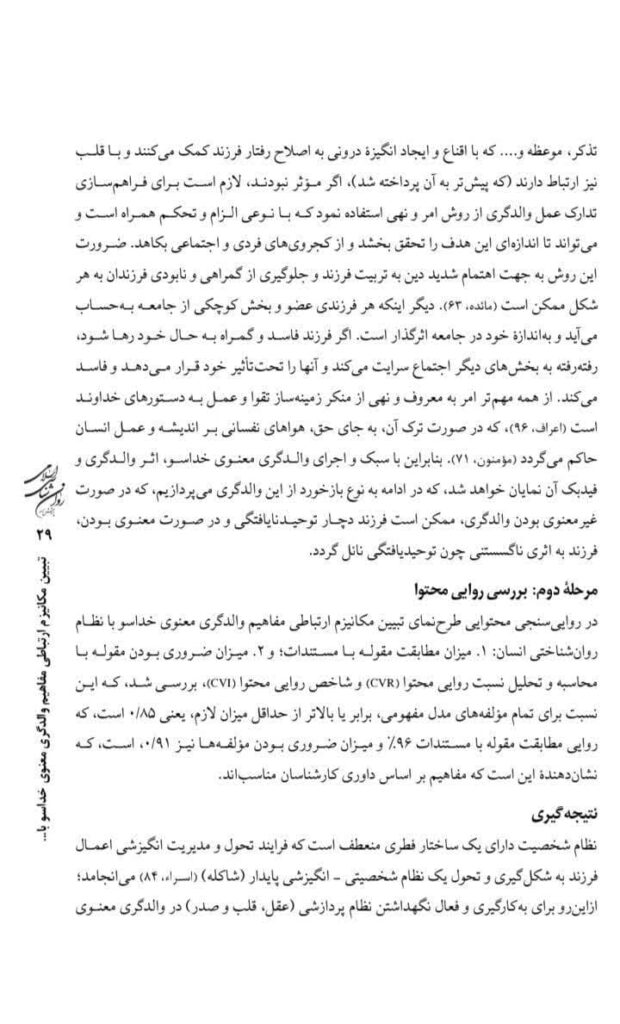 تذکر، موعظه و.... که با اقناع و ایجاد انگیزهٔ درونی به اصلاح رفتار فرزند کمک می‌کنند و با قلب
نیز ارتباط دارند (که پیش‌تر به آن پرداخته شد)، اگر مؤثر نبودند، لازم است برای فراهم‌سازی
تدارک عمل والدگری از روش امر و نهی استفاده نمود که با نوعی الزام و تحکم همراه است و
می‌تواند تا اندازه‌ای این هدف را تحقق بخشد و از کجروی‌های فردی و اجتماعی بکاهد. ضرورت
این روش به جهت اهتمام شدید دین به تربیت فرزند و جلوگیری از گمراهی و نابودی فرزندان به هر
شکل ممکن است (مائده، ۶۳). دیگر اینکه هر فرزندی عضو و بخش کوچکی از جامعه به‌حساب
می‌آید و به‌اندازهٔ خود در جامعه اثرگذار است. اگر فرزند فاسد و گمراه به حال خود رها شود،
رفته‌رفته به بخش‌های دیگر اجتماع سرایت می‌کند و آنها را تحت‌تأثیر خود قرار می‌دهد و فاسد
می‌کند. از همه مهم‌تر امر به معروف و نهی از منکر زمینه‌ساز تقوا و عمل به دستورهای خداوند
است (اعراف، ۹۶)، که در صورت ترک آن، به جای حق، هواهای نفسانی بر اندیشه و عمل انسان
حاکم می‌گردد (مؤمنون، ۷۱). بنابراین با سبک و اجرای والدگری معنوی خداسو، اثر والدگری و
فیدبک آن نمایان خواهد شد، که در ادامه به نوع بازخورد از این والدگری می‌پردازیم، که در صورت
غیرمعنوی بودن والدگری، ممکن است فرزند دچار توحیدنایافتگی و در صورت معنوی بودن،
فرزند به اثری ناگسستنی چون توحیدیافتگی نائل گردد.
مرحلهٔ دوم: بررسی روایی محتوا
در روایی‌سنجی محتوایی طرح‌نمای تبیین مکانیزم ارتباطی مفاهیم والدگری معنوی خداسو با نظام
روان‌شناختی انسان: ۱. میزان مطابقت مقوله با مستندات؛ و ۲. میزان ضروری بودن مقوله با
محاسبه و تحلیل نسبت روایی محتوا (CVR) و شاخص روایی محتوا (CVI)، بررسی شد، که این
نسبت برای تمام مؤلفه‌های مدل مفهومی، برابر یا بالاتر از حداقل میزان لازم، یعنی ۰/۸۵ است، که
روایی مطابقت مقوله با مستندات ۹۶٪ و میزان ضروری بودن مؤلفه‌ها نیز ۰/۹۱، است، که
نشان‌دهندهٔ این است که مفاهیم بر اساس داوری کارشناسان مناسب‌اند.
نتیجه‌گیری
نظام شخصیت دارای یک ساختار فطری منعطف است که فرایند تحول و مدیریت انگیزشی اعمال
فرزند به شکل‌گیری و تحول یک نظام شخصیتی - انگیزشی پایدار (شاکله) (اسراء، ۸۴) می‌انجامد؛
ازاین‌رو برای به‌کارگیری و فعال نگهداشتن نظام پردازشی (عقل، قلب و صدر) در والدگری معنوی
۲۹
تبیین مکانیزم ارتباطی مفاهیم والدگری معنوی خداسو با...